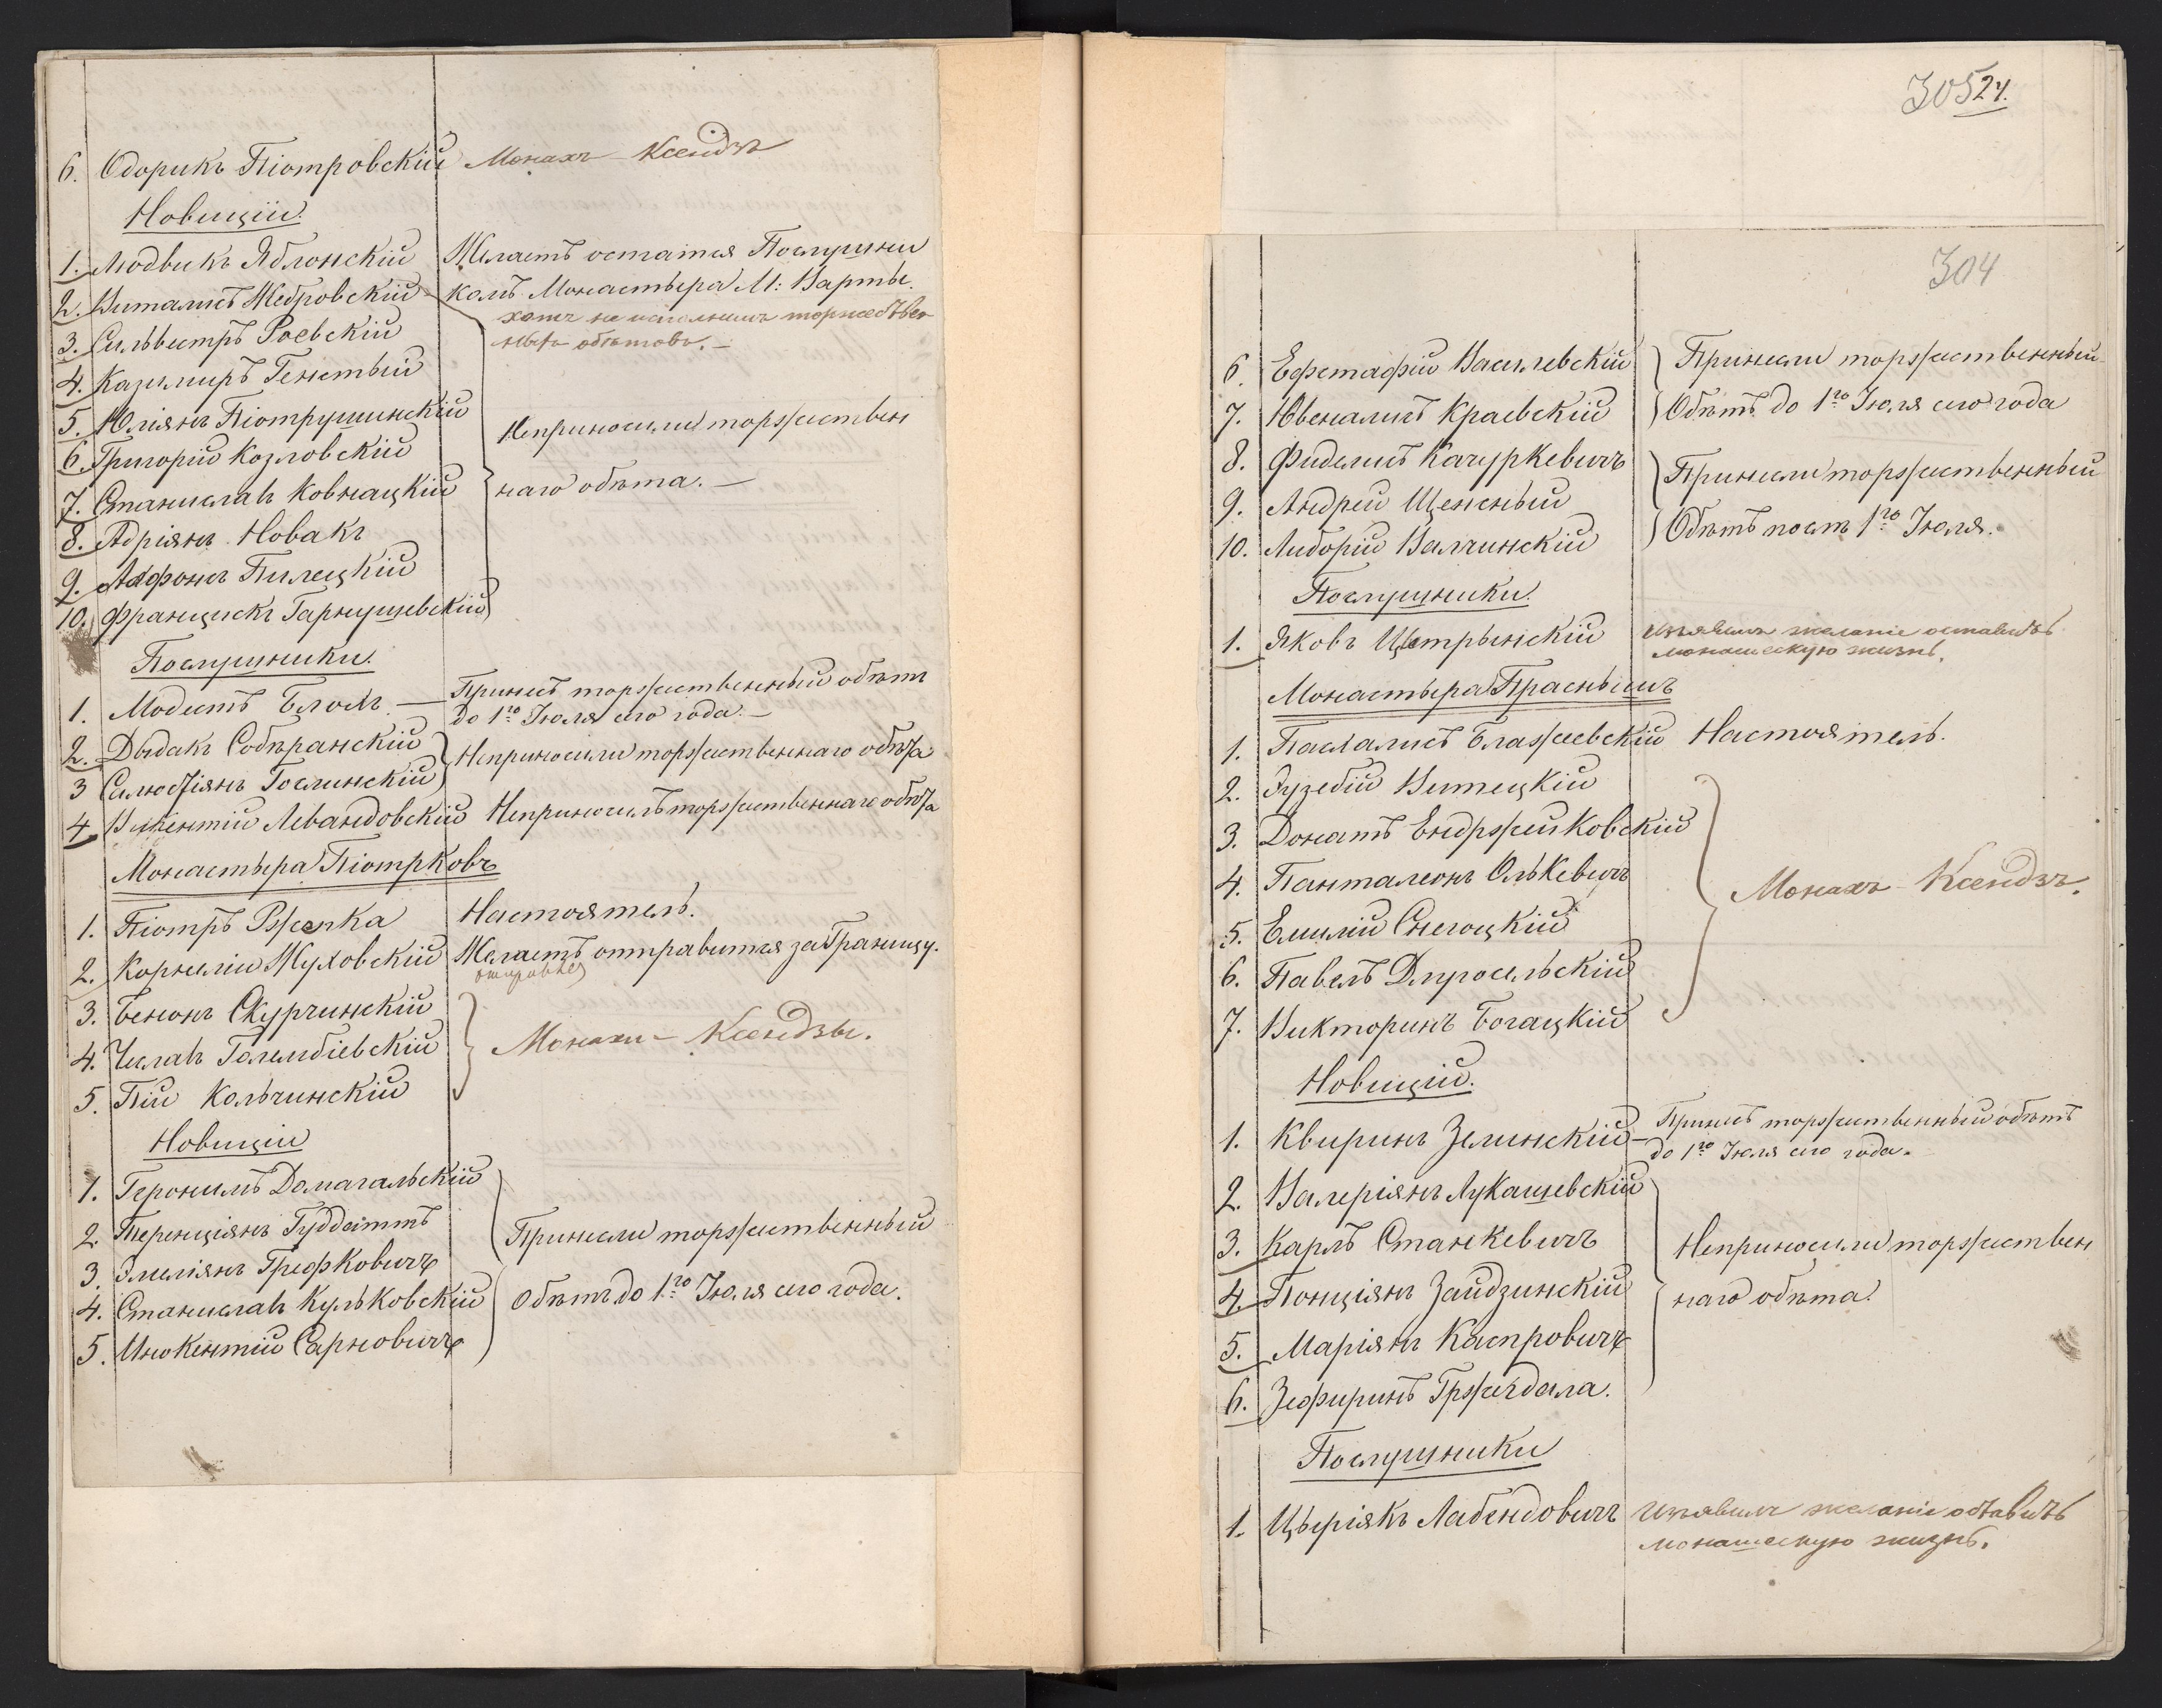 6. Одорикъ Піотровскій Монахъ - Ксендзъ
Новиціи.
1. Людвикъ Яблонскій Желаетъ остатся Послушни
2. Виталисъ Жебровскій комъ Монастыря М: Варты.
хотя не исполнилъ торжествен
3. Сильвестръ Роевскій ныхъ обѣтовъ. —
4. Казимиръ Генстый
5. Юліянъ Піотрушинскій Неприносили торжествен
6. Григорій Козловскій
7. Станиславъ Ковнацкій наго обѣта. —
8. Адріянъ Новакъ
9. Алфонъ Пилецкій
10. Францискъ Гарнушевскій
Послушники.
1. Модестъ Блокъ — Принесъ торжественный обѣтъ
до 1го Іюля сего года. —
2. Дыдакъ Собѣранскій Неприносили торжественнаго обѣта
3 Гослинскій
4 Викентій Левандовскій Неприносилъ торжественнаго обѣта
Монастыря Піотрковъ
1. Піотръ Ржепка Настоятель.
2. Корнелій Жуховскій Желаетъ отправится за Границу.
3. Бенонъ Скурчинскій
4. Чеславъ Голембіевскій Монахи - Ксендзы.
5. Пій Кольчинскій
Новиціи
1. Геронимъ Домагальскій
2. Теренціянъ Принесли торжественный
3. Эмеліянъ Грефковичъ
4. Станиславъ Кульковскій Обѣтъ до 1го Іюля сего года.
5. Инокентій Сарновичъ
305 24.
304
6. Ефстафій Василевскій Принесли торжественный
7. Ювеналисъ Краевскій Обѣтъ до 1го Іюля сего года
8. Фиделисъ Качуркевичъ Принесли торжественный
9. Андрей Щенсный
10. Либорій Валчинскій Обѣтъ послѣ 1го Іюля.
Послушники.
1. Яковъ Изъявилъ желаніе оставить
монашескую жизнь.
Монастыря Праснышъ
1. Пасхалисъ Блажеевскій Настоятель.
2. Эузебій Витецкій
3. Донатъ Ендржейковскій
4. Панталеонъ Олькевичъ Монахъ - Ксендзъ.
5. Емилій Снегоцкій
6. Павелъ Длугосельскій
7. Викторинъ Богацкій
Новиціи.
1. Квиринъ Зелинскій — Принесъ торжественный обѣтъ
до 1го Іюля сего года.
2. Валеріянъ Лукашевскій
3. Карлъ Станкевичъ Неприносили торжествен
4. Понціянъ Зайдзинскій наго обѣта.
5. Маріянъ Каспровичъ
6. Зефиринъ Гржегдала.
Послушники
1. Цыріякъ Лабендовичъ Изъявилъ желаніе оставить
монашескую жизнь.